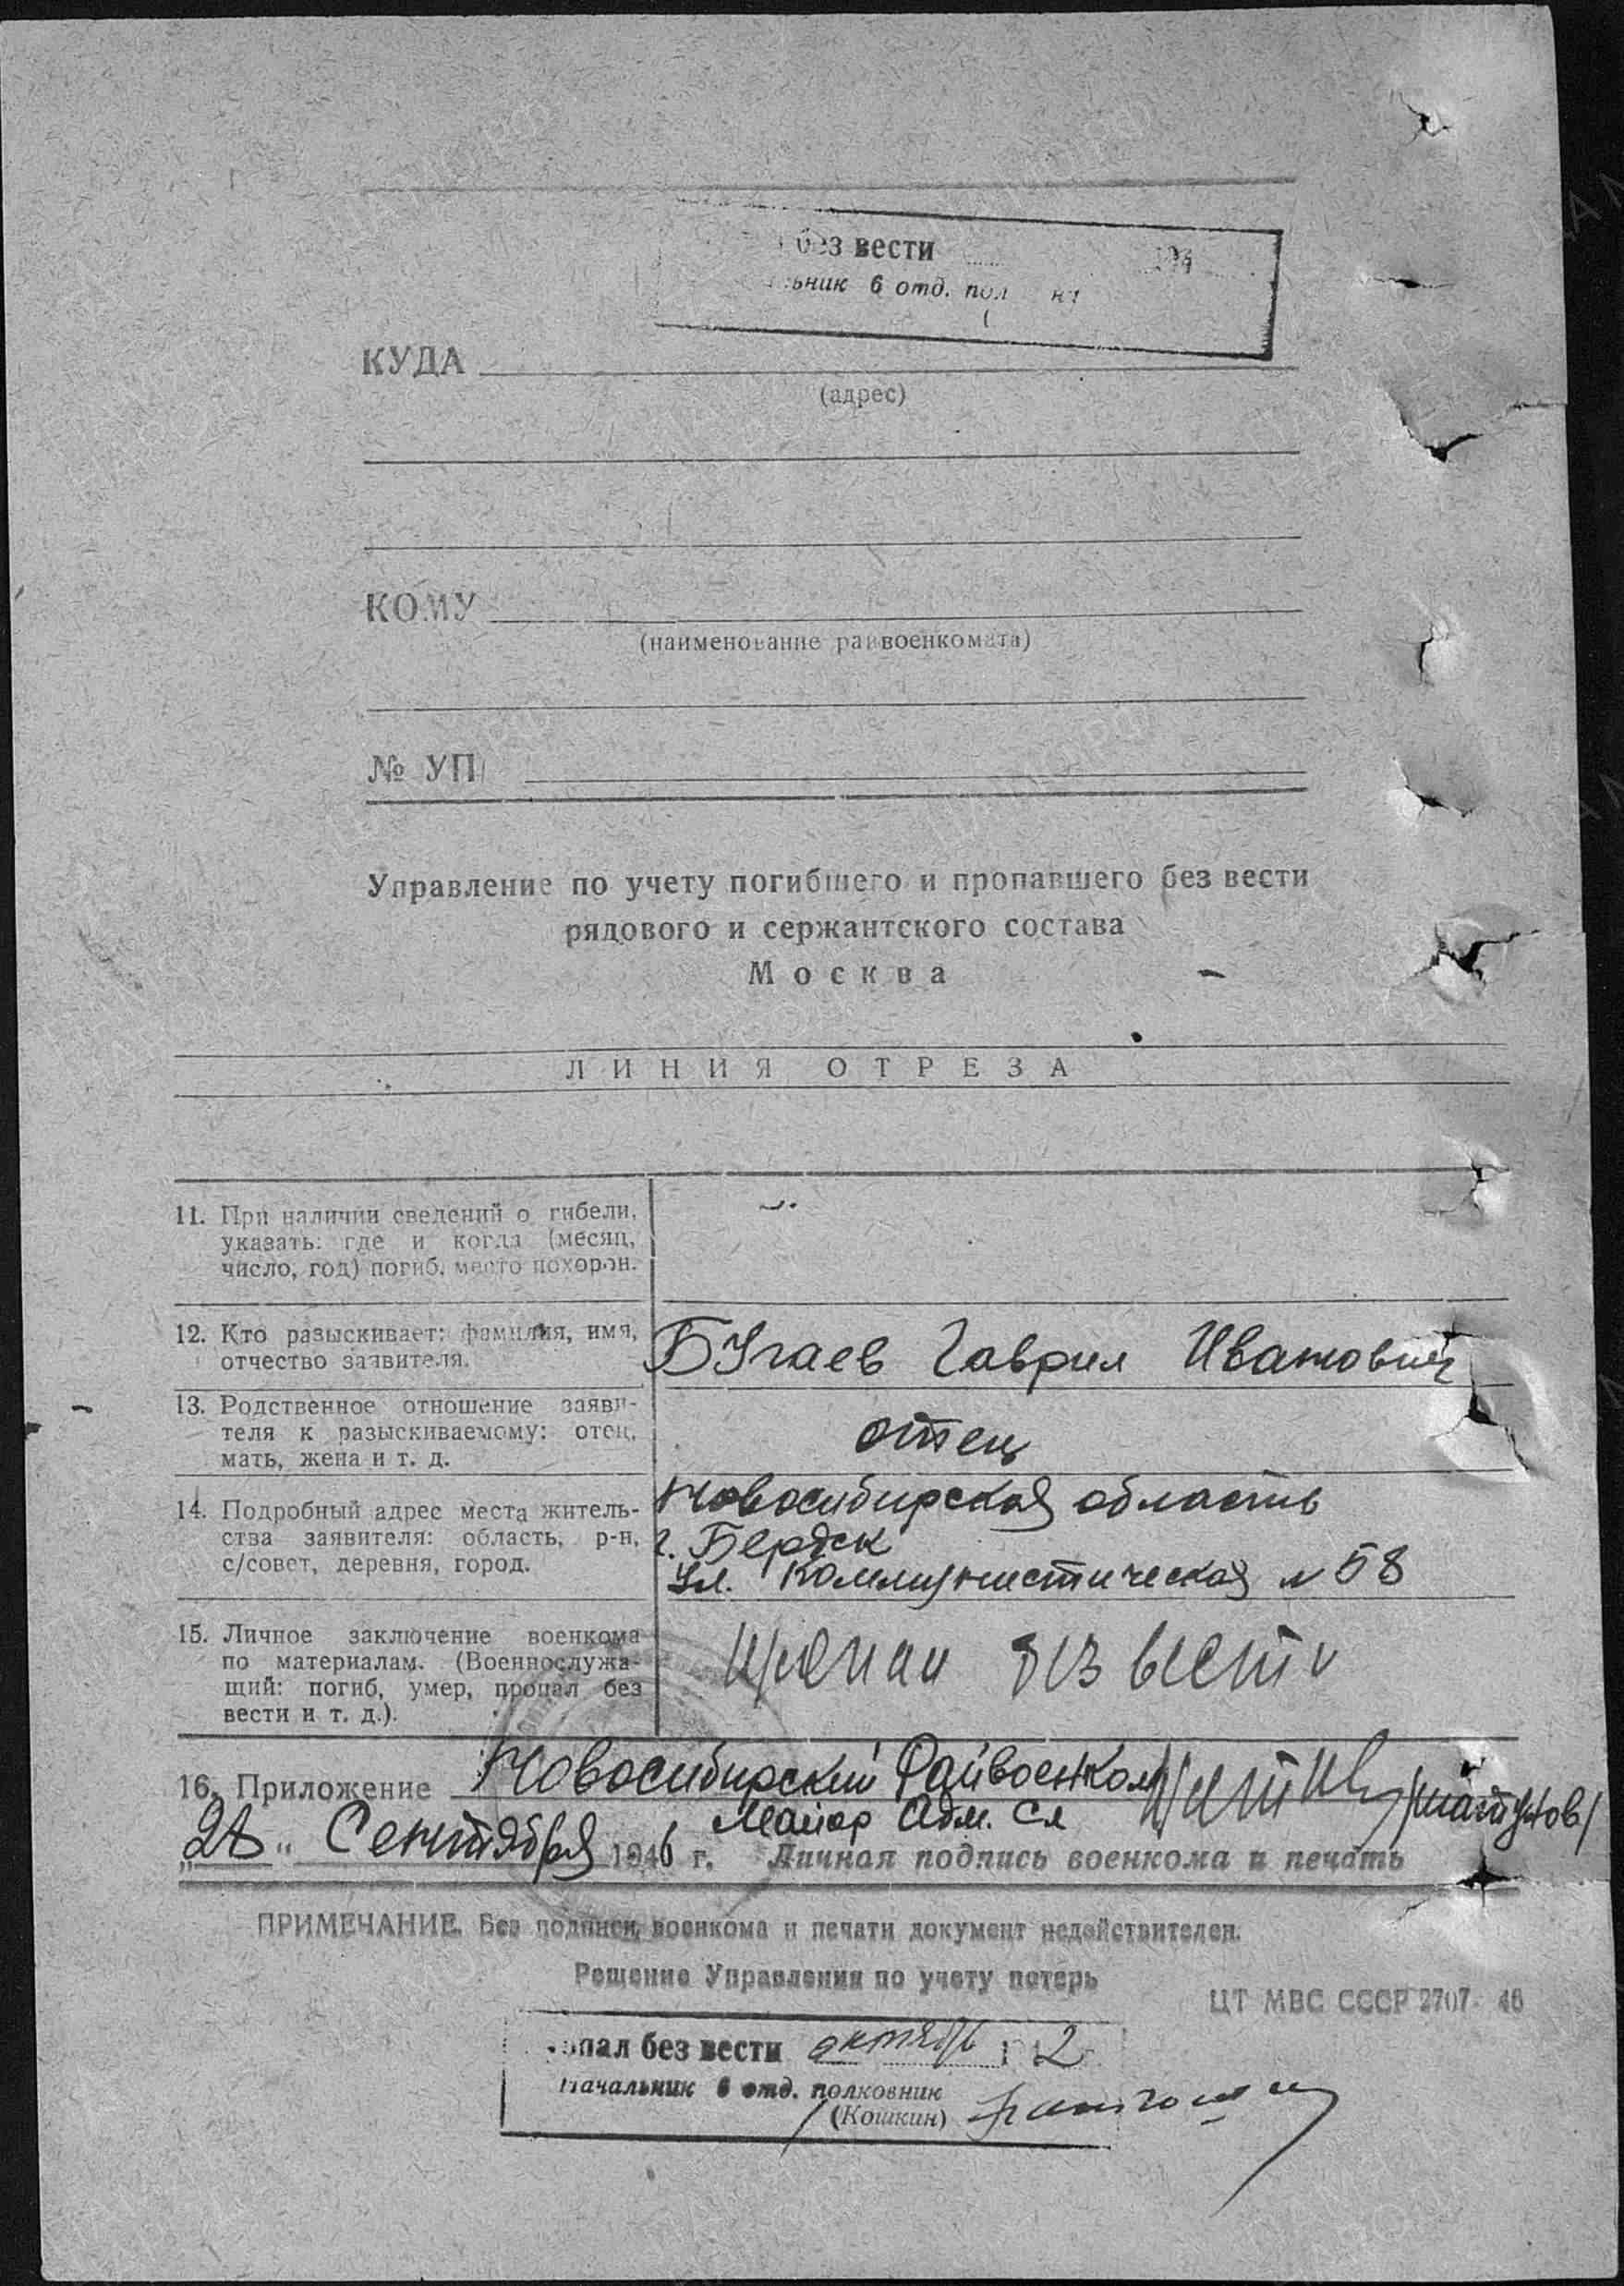 без вести 194
ьник 6 отд. пол
КУДА
(адрес)
КОМУ
(наименование райвоенкомата)
№ УП
Управление по учету погибшего и пропавшего без вести
рядового и сержантского состава
Москва
ЛИНИЯ ОТРЕЗА
11. При наличии сведений о гибели,
указать: где и когда (месяц,
число, год) погиб, место похорон.
12. Кто разыскивает: фамилия, имя,
отчество заявителя.
Бугаев Гаврил Иванович
13. Родственное отношение заяви-
теля к разыскиваемому: отец,
мать, жена и т. д.
отец
14. Подробный адрес места житель-
ства заявителя: область, р-н,
с/совет, деревня, город.
Новосибирская область
г. Бердск
ул. Коммунистическая № 58
15. Личное заключение военкома
по материалам. (Военнослужа-
щий: погиб, умер, пропал без
вести и т. д.).
Пропал без вести
16. Приложение Новосибирский Райвоенком
Майор Адм. Сл /Шатунов/
„28" Сентября 1946 г. Личная подпись военкома и печать
ПРИМЕЧАНИЕ. Без подписи военкома и печати документ недействителен.
Решение Управления по учету потерь
ЦТ МВС СССР 2707-46
опал без вести октябрь 2
Начальник 6 отд. полковник
(Кошкин)